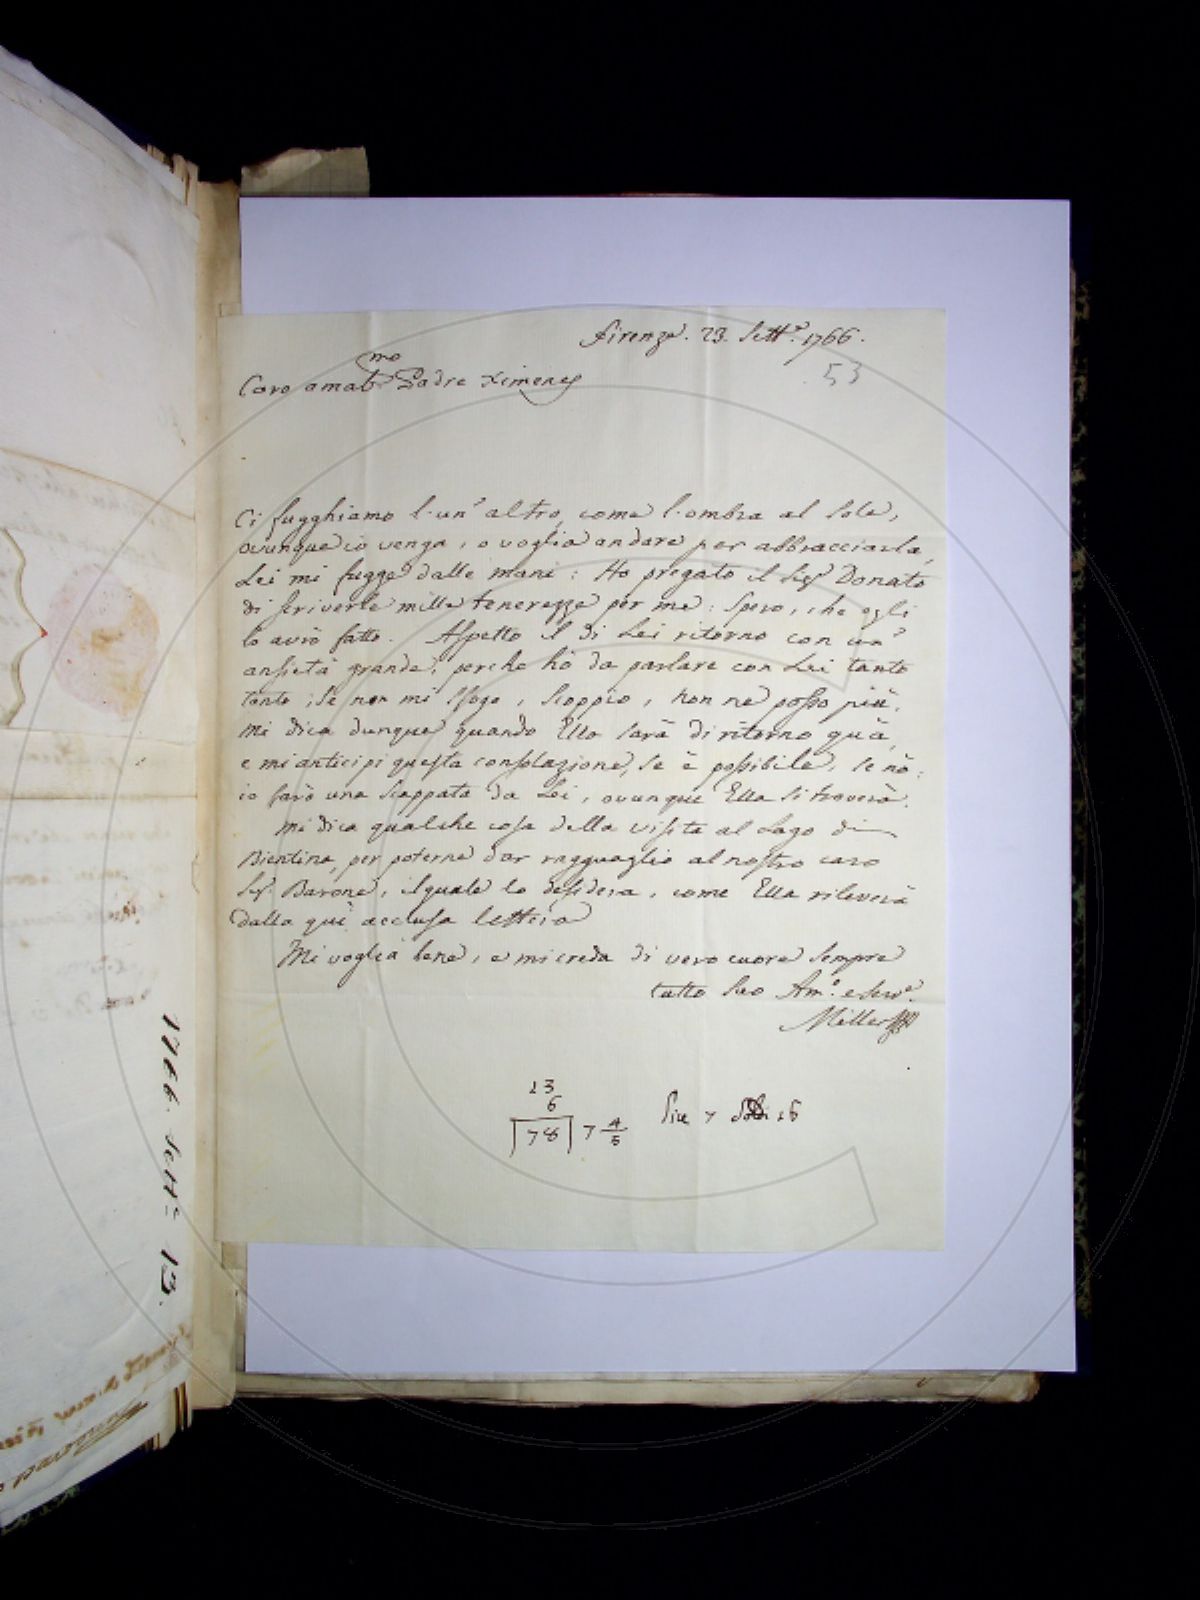 Firenze. 23. Sett.e 1766.
53
Caro amabmo Padre Ximenes
Ci fugghiamo l'un' altro, come l'ombra al Sole,
ovunque io venga, o voglia andare per abbracciarla,
Lei mi fugge dalle mani: Ho pregato il Sigr Donato
di scriverle mille tenerezze per me: Spero, che egli
lo avrà fatto. Aspetto il di Lei ritorno con un'
ansietà grande, perche hò da parlare con Lei tanto
tanto; Se non mi sfogo, scoppio, non ne posso più.
Mi dica dunque quando Ella sarà di ritorno quà,
e mi anticipi questa consolazione, se è possibile, se nò:
io farò una scappata da Lei, ovunque Ella si troverà.
Mi dica qualche cosa della visita al Lago di
Bientina, per poterne dar ragguaglio al nostro caro
Sigr. Barone, il quale lo desidera, come Ella rileverà
dalla quì acclusa lettera
Mi voglia bene, e mi creda di vero cuore sempre
tutto Suo Am.o e Serv.e
Miller
13
6
78 7 4/5 Lire 7 Soldi 16
1766. Sett.e 13.